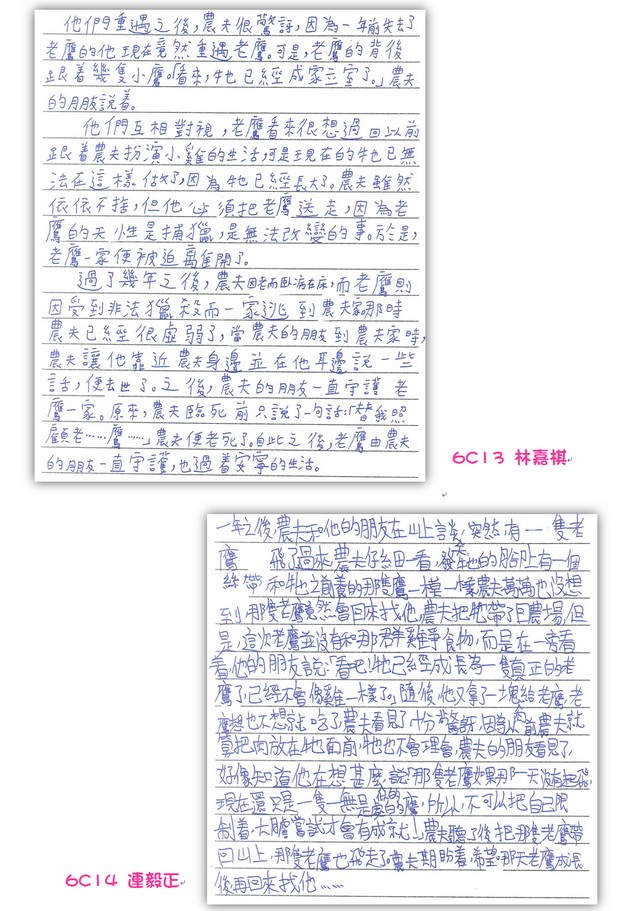 他們重遇之後，農夫很驚訝，因為一年前失去了
老鷹的他現在竟然重遇老鷹。可是，老鷹的背後
跟着幾隻小鷹。「看來，牠已經成家立室了。」農夫
的朋友說着。
他們互相對視，老鷹看來很想過回以前
跟着農夫扮演小雞的生活，可是現在的牠已無
法在這樣做了，因為牠已經長大了。農夫雖然
依依不捨，但他必須把老鷹送走，因為老
鷹的天性是捕獵，是無法改變的事。於是，
老鷹一家便被迫離開了。
過了幾年之後，農夫因老而臥病在床，而老鷹則
因受到非法獵殺而一家逃到農夫家。那時
農夫已經很虛弱了，當農夫的朋友到農夫家時，
農夫讓他靠近農夫身邊並在他耳邊說一些
話，便去世了。之後，農夫的朋友一直守護老
鷹一家。原來，農夫臨死前只說了一句話：「替我照
顧老……鷹……」農夫便老死了。自此之後，老鷹由農夫
的朋友一直守護，也過着安寧的生活。
6C13 林嘉棋
一年之後農夫和他的朋友在山上談，突然，有一隻老
鷹飛了過來，農夫仔細一看，發現牠的胸上有一個
絲帶和牠之前養的那隻鷹一模一樣農夫萬萬也沒想
到那隻老鷹竟然會回來找他，農夫把牠帶了回農場，但
是，這次老鷹並沒有和那群雞爭食物，而是在一旁看
着他的朋友說：「看吧！牠已經成長為一隻真正的老
鷹了，已經不會像雞一樣了。」隨後他又拿了一塊給老鷹，老
鷹想也不想就吃了，農夫看見了十分驚訝，因為以前農夫就
算把肉放在牠面前，牠也不會理會，農夫的朋友看見了，
好像知道他在想甚麼，說「那隻老鷹如果那一天沒有起飛，
現在還只是一隻一無是處的鷹，所以，不可以把自己限
制着，大膽嘗試才會有成就！」農夫聽了後把那隻老鷹帶
回山上，那隻老鷹也飛走了。農夫期盼着，希望那天老鷹成長
後再回來找他……
6C14 連毅正